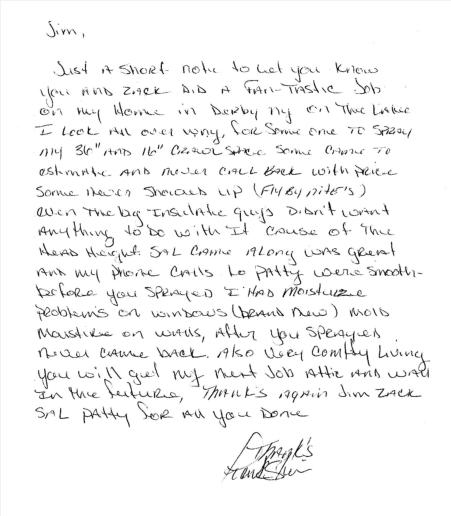 Jim,
Just A Short note to let you know
you AND ZACK DID A FAN-TASTIC Job
on my Home in Derby ny on The Lake
I Look All over wny, for some one TO SPRAY
my 36" AND 16" CRAWL SPACE some CAME TO
estimate AND never CALL BACK with Price
some never showed up (Fly By nite's)
even The big Insulate guys Didn't want
Anything to do with It cause of The
Head Height. SAL CAME Along was great
AND my phone CAlls to PATTY were smooth-
before you sprayed I HAD moisture
problems on windows (BRAND new) mold
moisture on walls, After you SPRAYED
never came back. Also very Comfty Living
you will get my next Job Attic AND wall
In the future, THANKS Again Jim ZACK
SAL PATTY for All you Done
Thank's